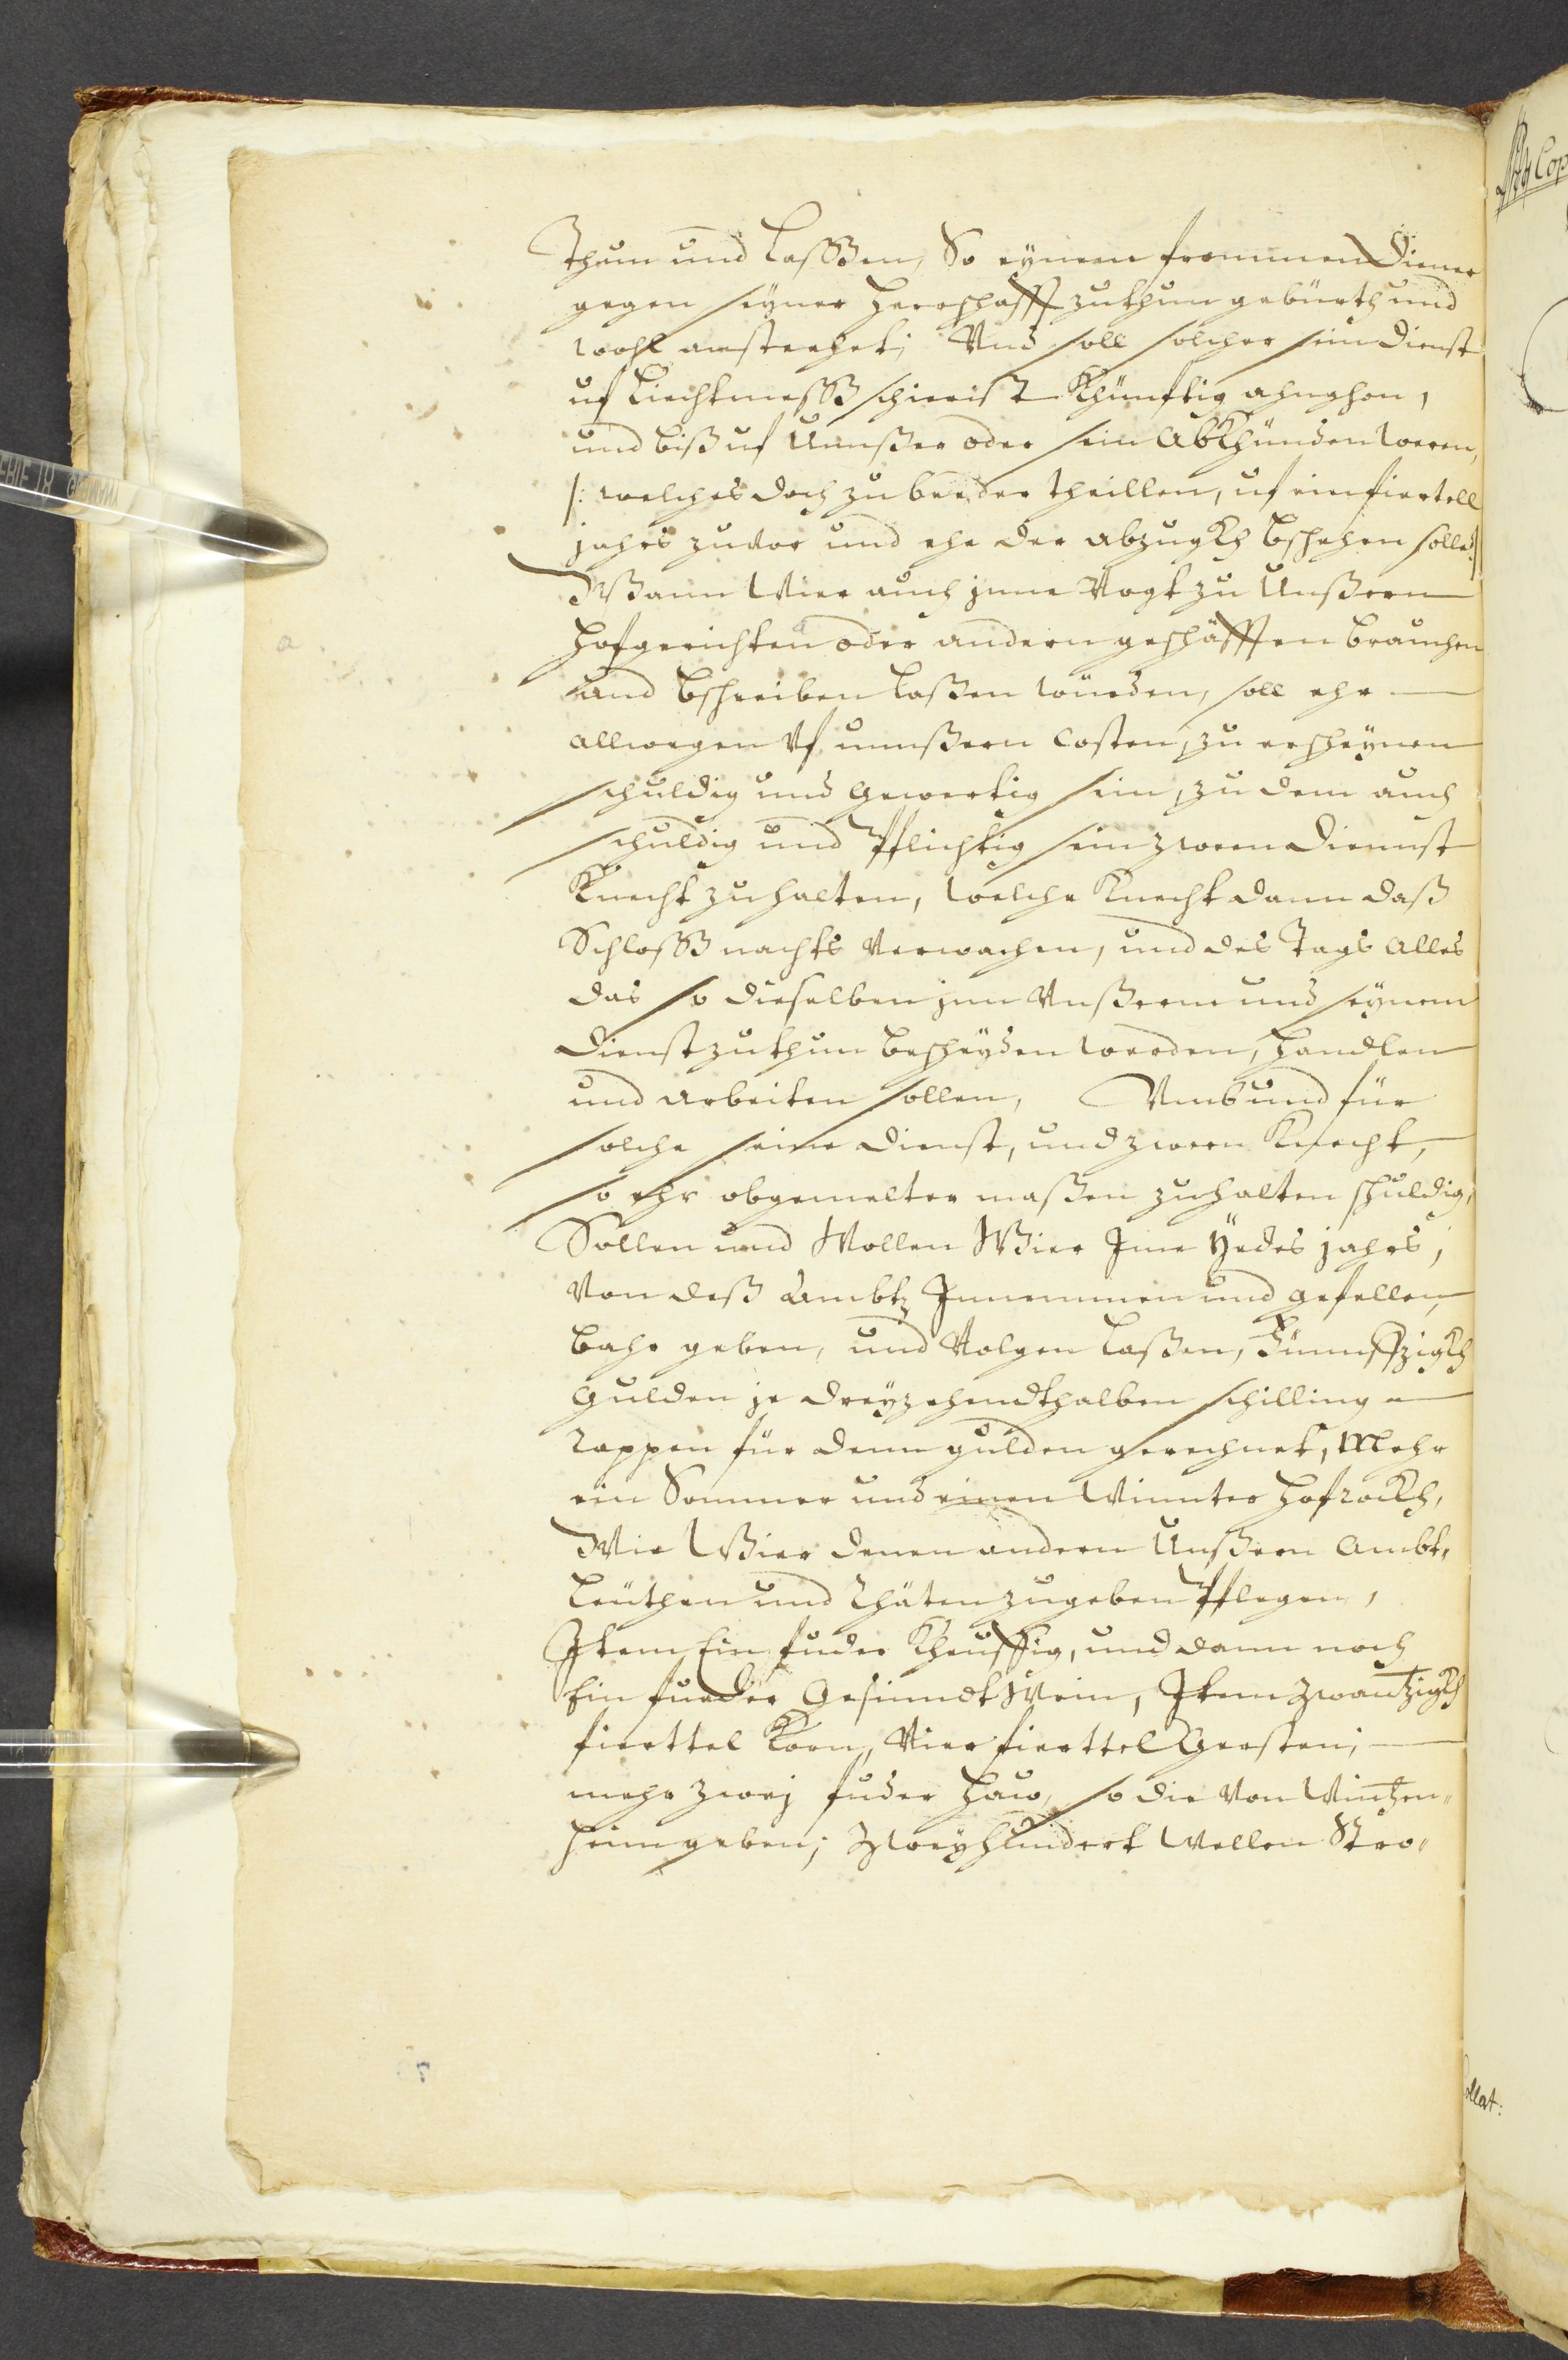 Thun und Lasßen, So eynem frommen Diener
gegen seyner Herrschafft zuthun gebürth und
wohl anstechet; Und soll solcher sein Dienst
uf Liechtmesß schierist Khünftig ahnghon,
und biß uf Unnßer oder sein Abkhünden weren,
/: welches doch zu beeder theillen, uf ein fiertell
jahrs zuvor und ehe der abzugkh bschehen solle :/
Wann Wier auch jnne Vogt zu Unßern
Hofgerichten oder andern geschäfften brauchen
und bschreiben laßen würden, soll ehr
allwegen Uf unnßern Costen, zu erscheynen
schuldig und gewertig sein, zu dem auch
schuldig und Pflichtig sein zween Diennst
Knecht zuhalten, welche Knecht dann daß
Schlosß nachts Verwachen, und des Tags Alles
das so dieselben jnn Unßerm und seynem
Dienst zuthun bescheyden werden, handlen
und arbeiten sollen, Umb und für
solche seine Dienst, und zween Knecht,
so ehr obgemelter maßen zuhalten schuldig,
Sollen und Wollen Wier Jme Yedes jahrs,
Von deß Ambtz Jnnemmen und gefellen,
bahr geben, und Volgen laßen, Fünnffzigkh
Gulden je dreyzehendthalben schilling
rappen für denn gulden gerechnet, Mehr
ein Sommer und einen Winnter hofrockh,
Wie Wier denen andern Unßern Ambt,
Leüthen und Rhäten zugeben Pflegen,
Jtem Ein fuder, und dann noch
Ein fueder Gesinndt Wein, Jtem Zwantzigkh
fierttel Korn, Vier fierttel Gersten,
mehr zwej fuder Hauw, so die Von Wintzen„
heim geben; Zweyhundert Wellen Stro„